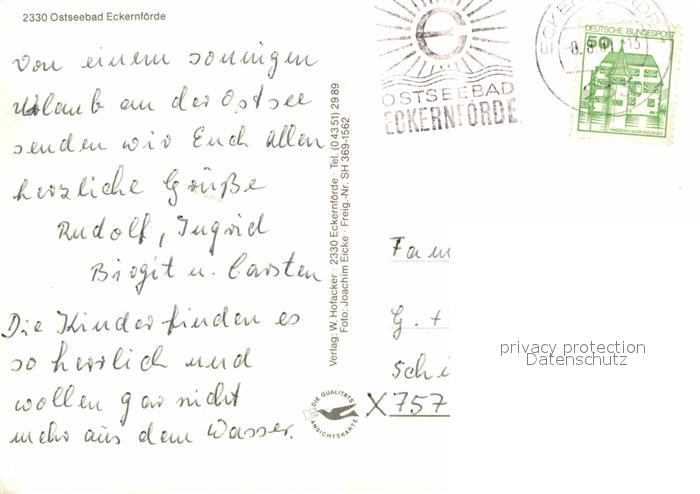 2330 Ostseebad Eckernförde
Von einem sonnigen
Urlaub an der Ostsee
senden wir Euch allen
herzliche Grüße
Rudolf, Ingrid
Birgit u. Carsten
Die Kinder finden es
so herrlich und
wollen gar nicht
mehr aus dem Wasser.
Verlag: W. Hofacker · 2330 Eckernförde · Tel. (04351) 2989
Foto: Joachim Eicke · Freig.-Nr. SH 369-1562
DIE QUALITÄTS
ANSICHTSKARTE
OSTSEEBAD
ECKERNFÖRDE
DEUTSCHE BUNDESPOST
50
Fam
G. +
Schi
X757
privacy protection
Datenschutz